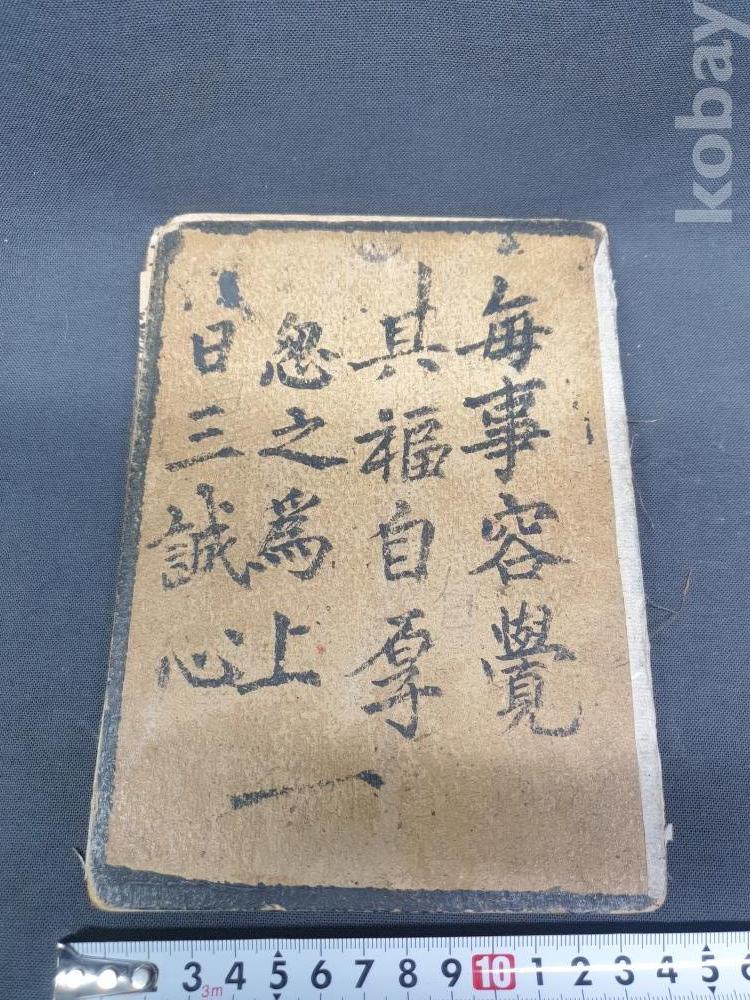 每事容覺
其福自厚
忍之爲上一
日三誠心
kobay
3 4 5 6 7 8 9 10 1 2 3 4 5 6
3m